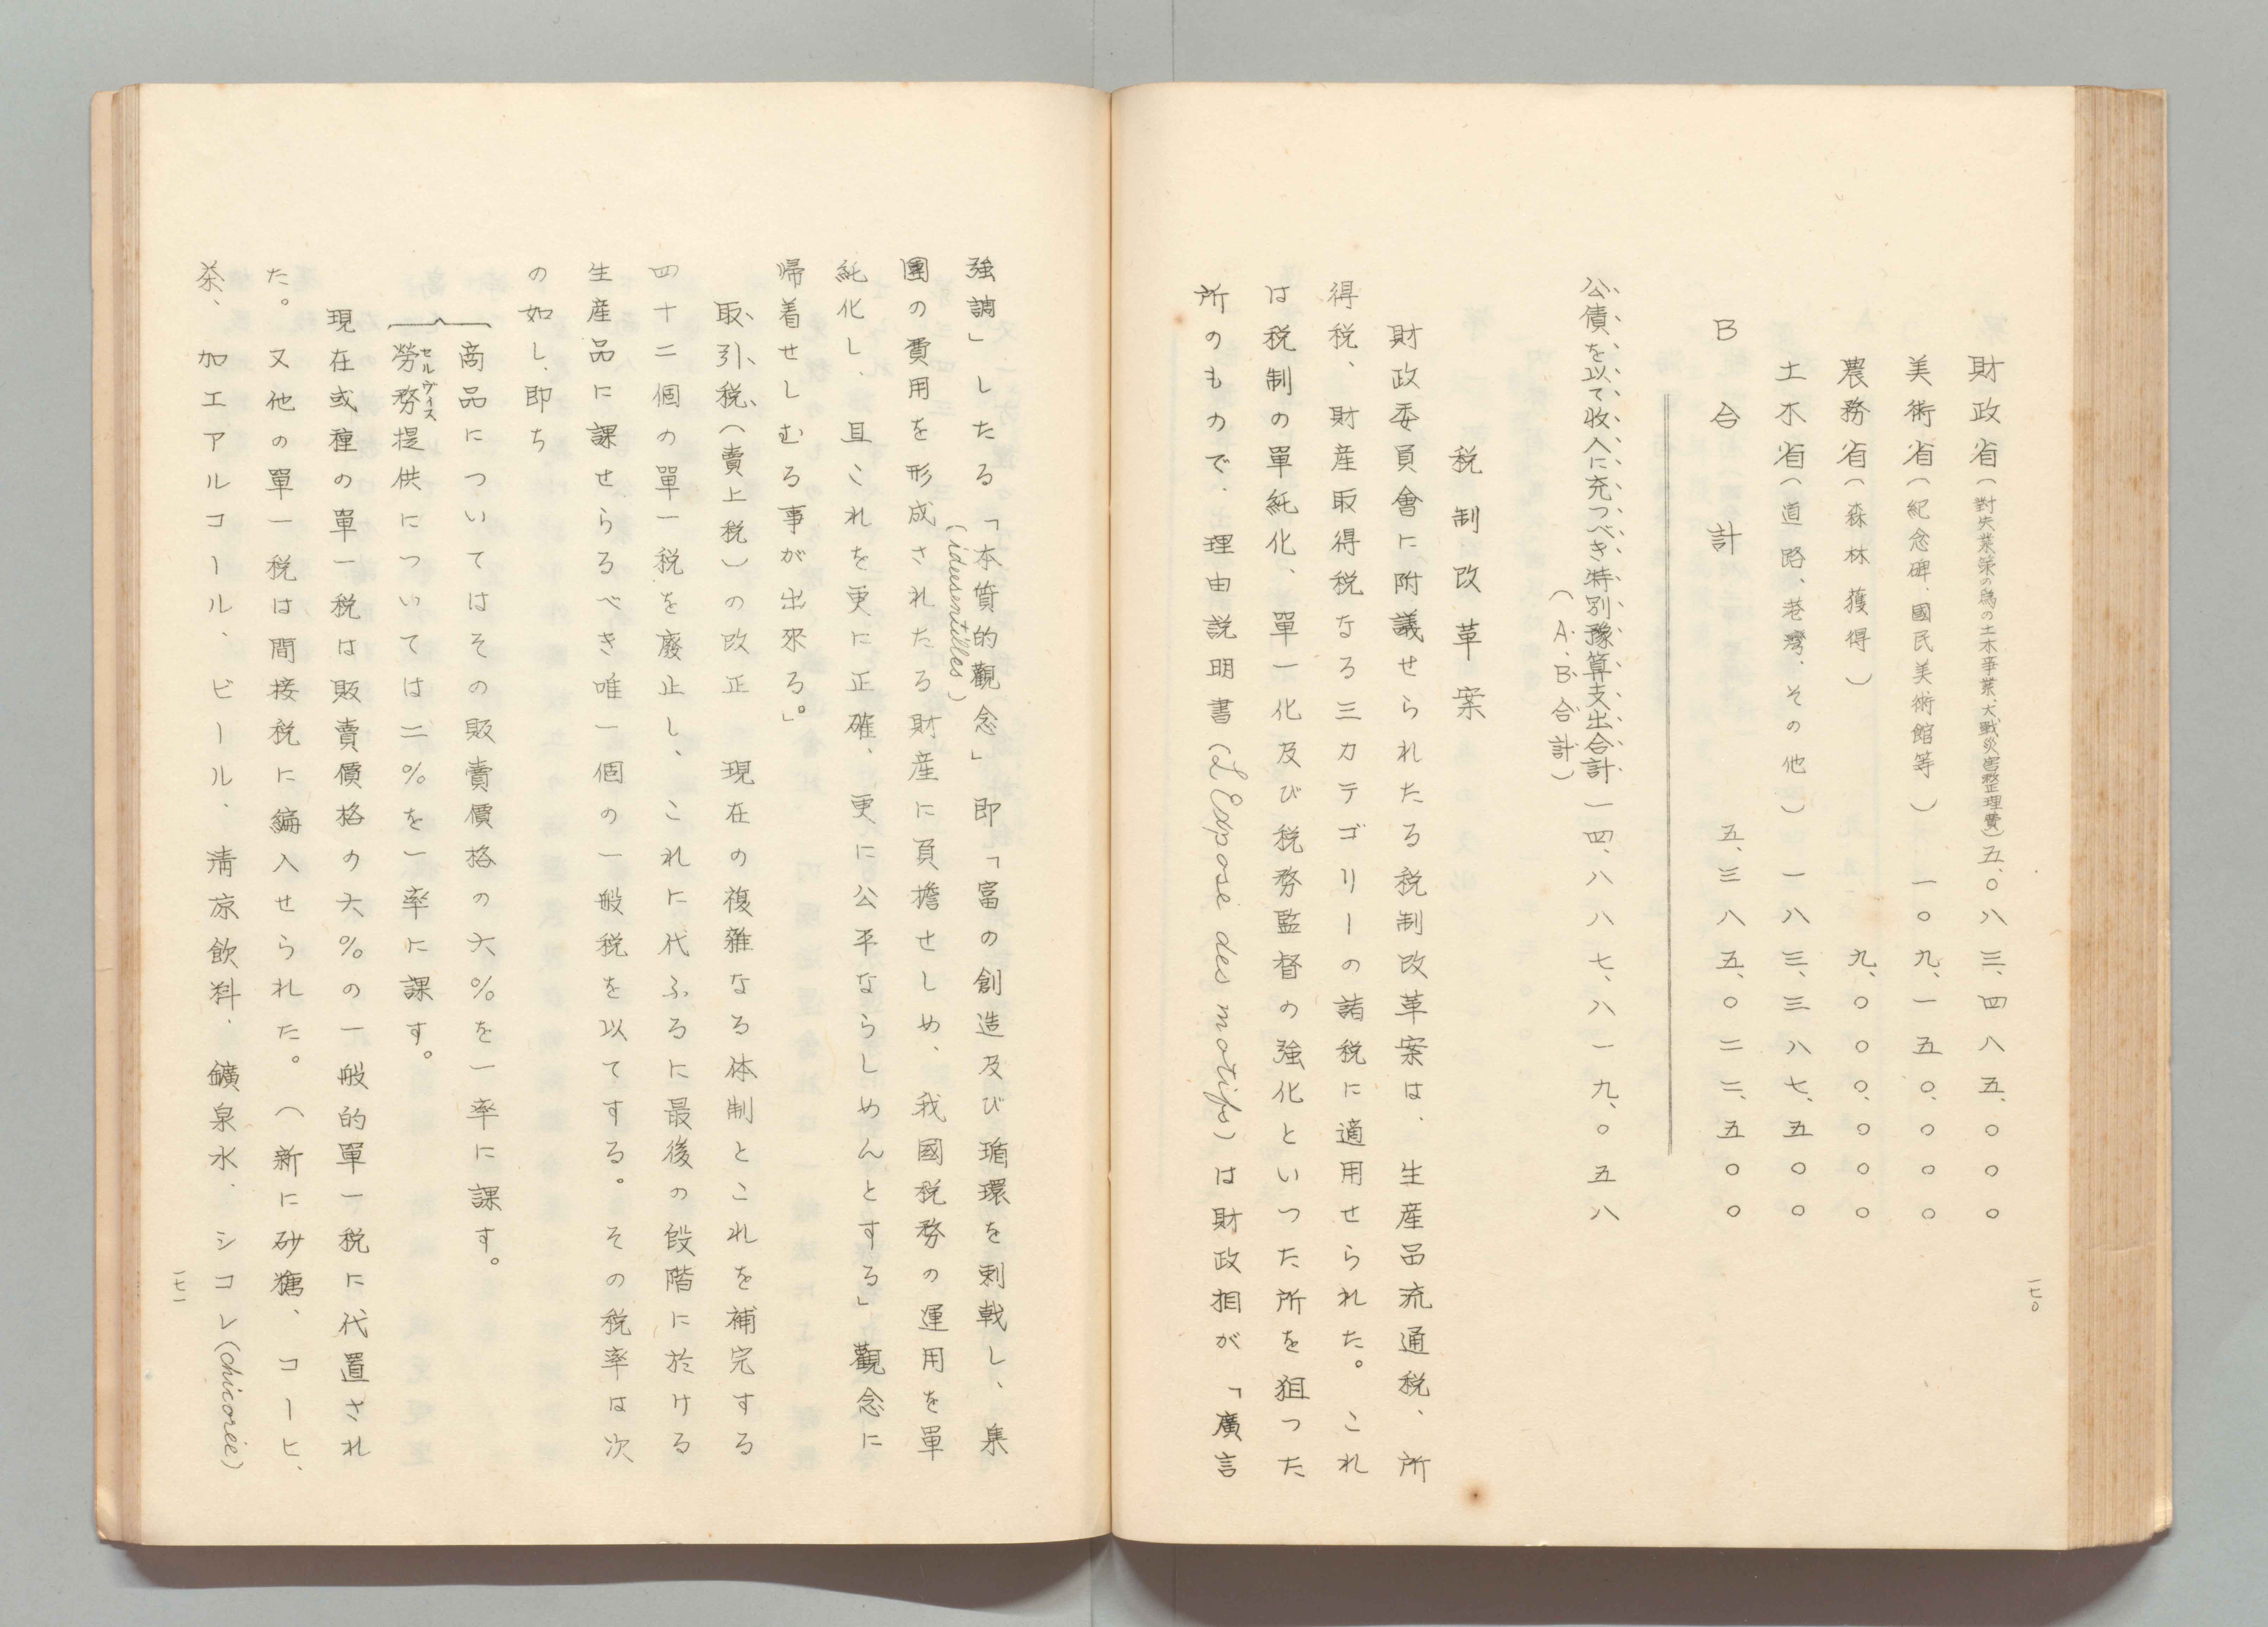 財政省(對失業策の爲の土木事業、大戰災害整理費)五、〇八三、四八五、〇〇〇
美術省(紀念碑、國民美術館等)一〇九、一五〇、〇〇〇
農務省(森林獲得)九、〇〇〇、〇〇〇
土木省(道路、港灣、その他)一八三、三八七、五〇〇
B 合計 五、三八五、〇二二、五〇〇
公債を以て收入に充つべき特別豫算支出合計 一四、八八七、八一九、〇五八
(A.B.合計)
税制改革案
財政委員會に附議せられたる税制改革案は、生産品流通税、所
得税、財産取得税なる三カテゴリーの諸税に適用せられた。これ
は税制の單純化、單一化及び税務監督の強化といつた所を狙つた
所のもので、理由説明書(L'Exposé des motifs)は財政相が「廣言
一七〇
強調」したる「本質的觀念」即「富の創造及び循環を刺戟し、集
(idées entilles)
團の費用を形成されたる財産に負擔せしめ、我國税務の運用を單
純化し、且これを更に正確、更に公平ならしめんとする」觀念に
帰着せしむる事が出來る。」
取引税(賣上税)の改正 現在の複雜なる体制とこれを補完する
四十二個の單一税を廢止し、これに代ふるに最後の段階に於ける
生産品に課せらるべき唯一個の一般税を以てする。その税率は次
の如し、即ち
商品についてはその販賣價格の六%を一率に課す。
勞務提供については二%を一率に課す。
セルヴィス
現在或種の單一税は販賣價格の六%の一般的單一税に代置され
た。又他の單一税は間接税に編入せられた。(新に砂糖、コーヒ、
茶、加工アルコール、ビール、淸凉飲料、鑛泉水、シコレ(chicorée)
一七一